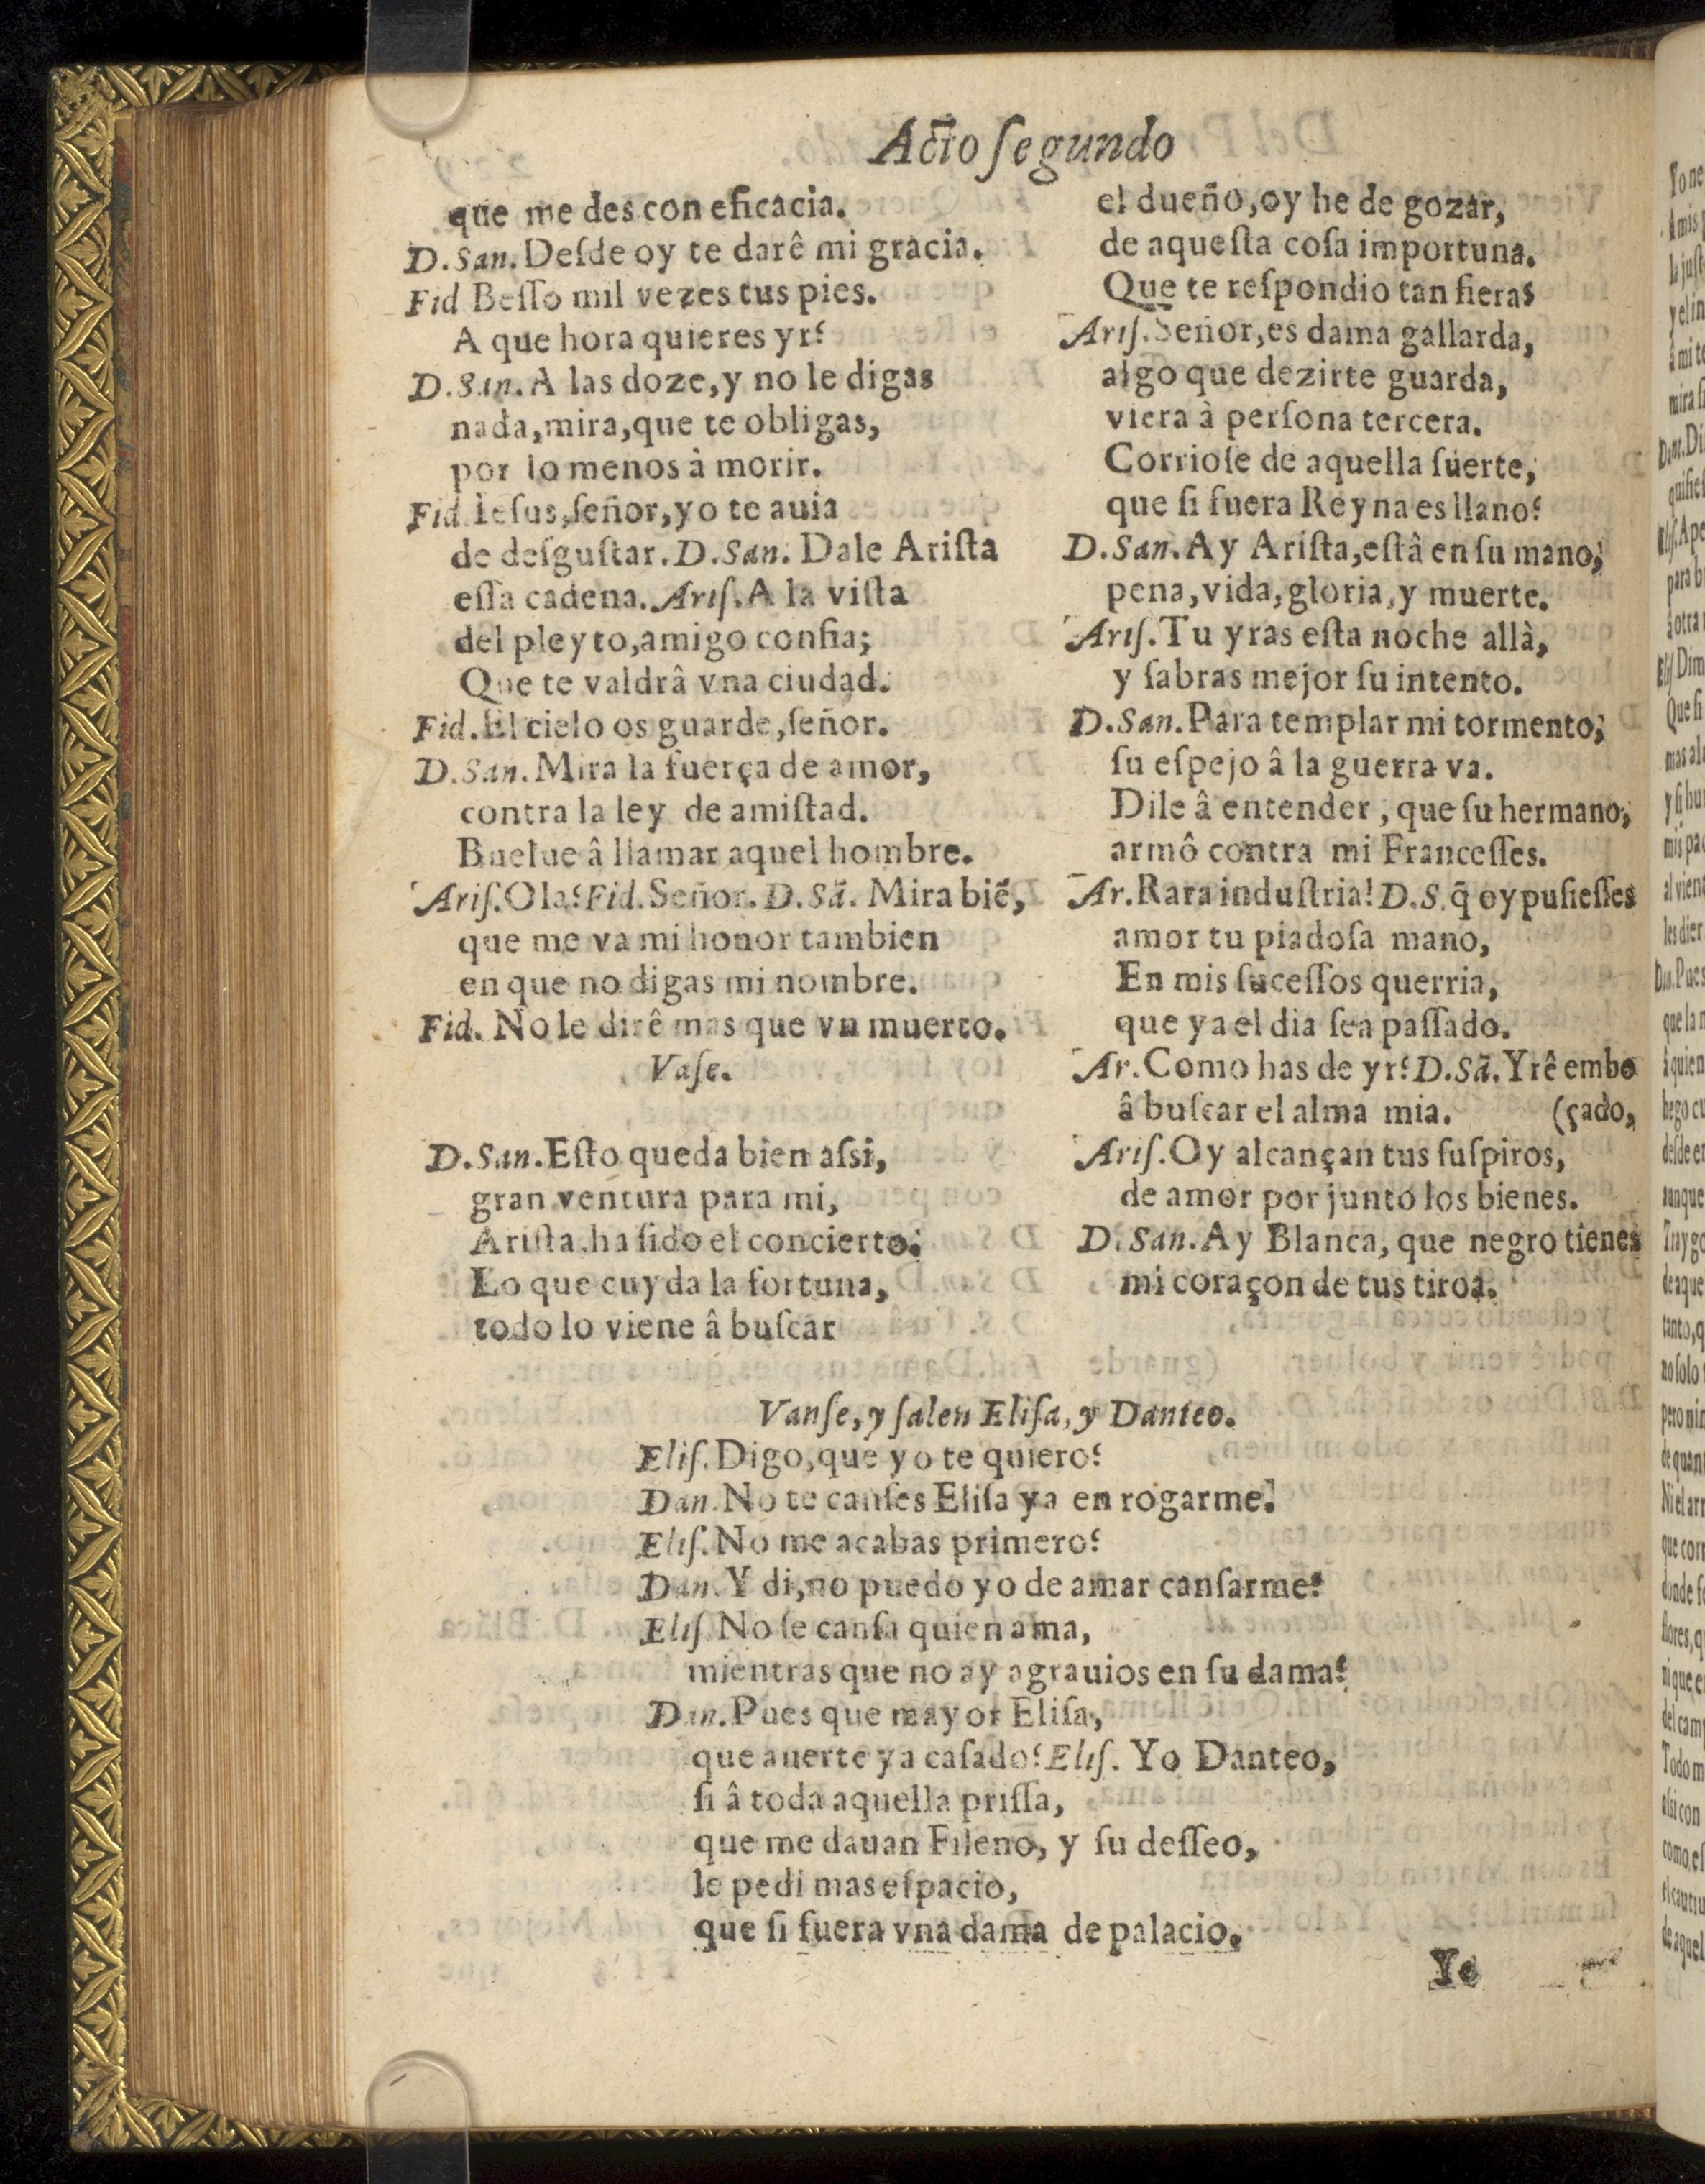 Acto ſegundo
que me des con eficacia.
D.San.Deſde oy te darê mi gracia.
Fid Beſſo mil vezes tus pies.
A que hora quieres yr?
D.San.A las doze,y no le digas
nada,mira,que te obligas,
por lo menos à morir.
Fid Ieſus,ſeñor,yo te auia
de deſguſtar.D.San. Dale Ariſta
eſſa cadena.Ariſ.A la viſta
del pleyto,amigo confia;
Que te valdrâ vna ciudad.
Fid.El cielo os guarde,ſeñor.
D.San.Mira la fuerça de amor,
contra la ley de amiſtad.
Buelue â llamar aquel hombre.
Ariſ.Ola?Fid.Señor.D.Sā. Mira biē,
que me va mi honor tambien
en que no digas mi nombre.
Fid. No le dirê mas que vn muerto.
Vaſe.
D.San.Eſto queda bien aſsi,
gran ventura para mi,
Ariſta,ha ſido el concierto:
Lo que cuyda la fortuna,
todo lo viene â buſcar
el dueño,oy he de gozar,
de aqueſta coſa importuna.
Que te reſpondio tan fieras
Ariſ.Señor,es dama gallarda,
algo que dezirte guarda,
viera à perſona tercera.
Corrioſe de aquella ſuerte,
que ſi fuera Reyna es llano?
D.San.Ay Ariſta,eſtâ en ſu mano;
pena,vida,gloria,y muerte.
Ariſ.Tu yras eſta noche allà,
y ſabras mejor ſu intento.
D.San.Para templar mi tormento;
ſu eſpejo â la guerra va.
Dile â entender , que ſu hermano;
armô contra mi Franceſſes.
Ar.Rara induſtria!D.S.q̄ oy puſieſſes
amor tu piadoſa mano,
En mis ſuceſſos querria,
que ya el dia ſea paſſado.
Ar.Como has de yr?D.Sā.Yrê embo
â buſcar el alma mia. (çado,
Ariſ.Oy alcançan tus ſuſpiros,
de amor por junto los bienes.
D.San.Ay Blanca, que negro tienes
mi coraçon de tus tiroa.
Vanſe, y ſalen Eliſa, y Danteo.
Eliſ.Digo,que yo te quiero?
Dan.No te canſes Eliſa ya en rogarme.
Eliſ.No me acabas primero?
Dan.Y di,no puedo yo de amar canſarme?
Eliſ No ſe canſa quien ama,
mientras que no ay agrauios en ſu dama?
Dan.Pues que mayor Eliſa,
que auerte ya caſado?Eliſ. Yo Danteo,
ſi â toda aquella priſſa,
que me dauan Fileno, y ſu deſſeo,
le pedi mas eſpacio,
que ſi fuera vna dama de palacio.
Ye